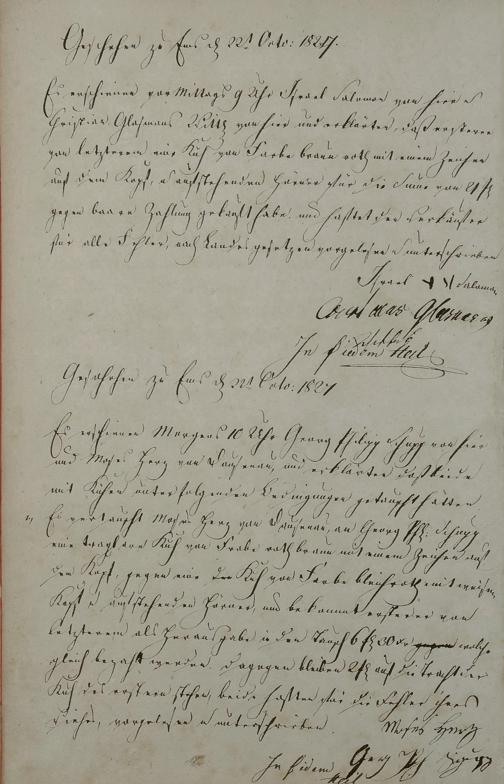 Geschehen zu Ems d 22t Octo: 1827.
Es erschienen vor Mittags 9 Uhr Israel Salomon von hier &
Christian Glasmans Wittb von hier und erklärten, daß ersterer
von letzterem eine Kuh von Farbe braun roth mit einem Zeichen
auf dem Kopf, u aufstehenden Hörner für die Summe von 21 fl
gegen baare Zahlung gekauft habe, und haftet der Verkäufer
für alle Fehler, nach Landesgesetzen vorgelesen & unterschrieben
Israel Salomon
Glasmans
In fidem
Geschehen zu Ems d 22t Octo: 1827
Es erschienen Morgens 10 Uhr Georg Philipp Schupp von hier
und Moses Herz von Dausenau, und erklärten daß beide
mit Kühen unter folgenden Bedingungen getauscht hätten
Es vertauscht Moses Herz von Dausenau, an Georg Phl: Schupp
eine tragbare Kuh von Farbe rothbraun mit einem Zeichen auf
dem Kopf, gegen eine Kuh von Farbe mit weißem
Kopf u aufstehenden Hörner, und bekommt ersterer von
letzterem als Herausgabe in den Tausch 6 fl 30 welche
gleich bezahlt werden. Dagegen bleiben 2 fl auf die Tracht der
Kuh des erstern stehen, beide haften für die Fehler ihres
Viehes, vorgelesen u unterschrieben
Moses Hertz
In fidem Georg Ph Schupp